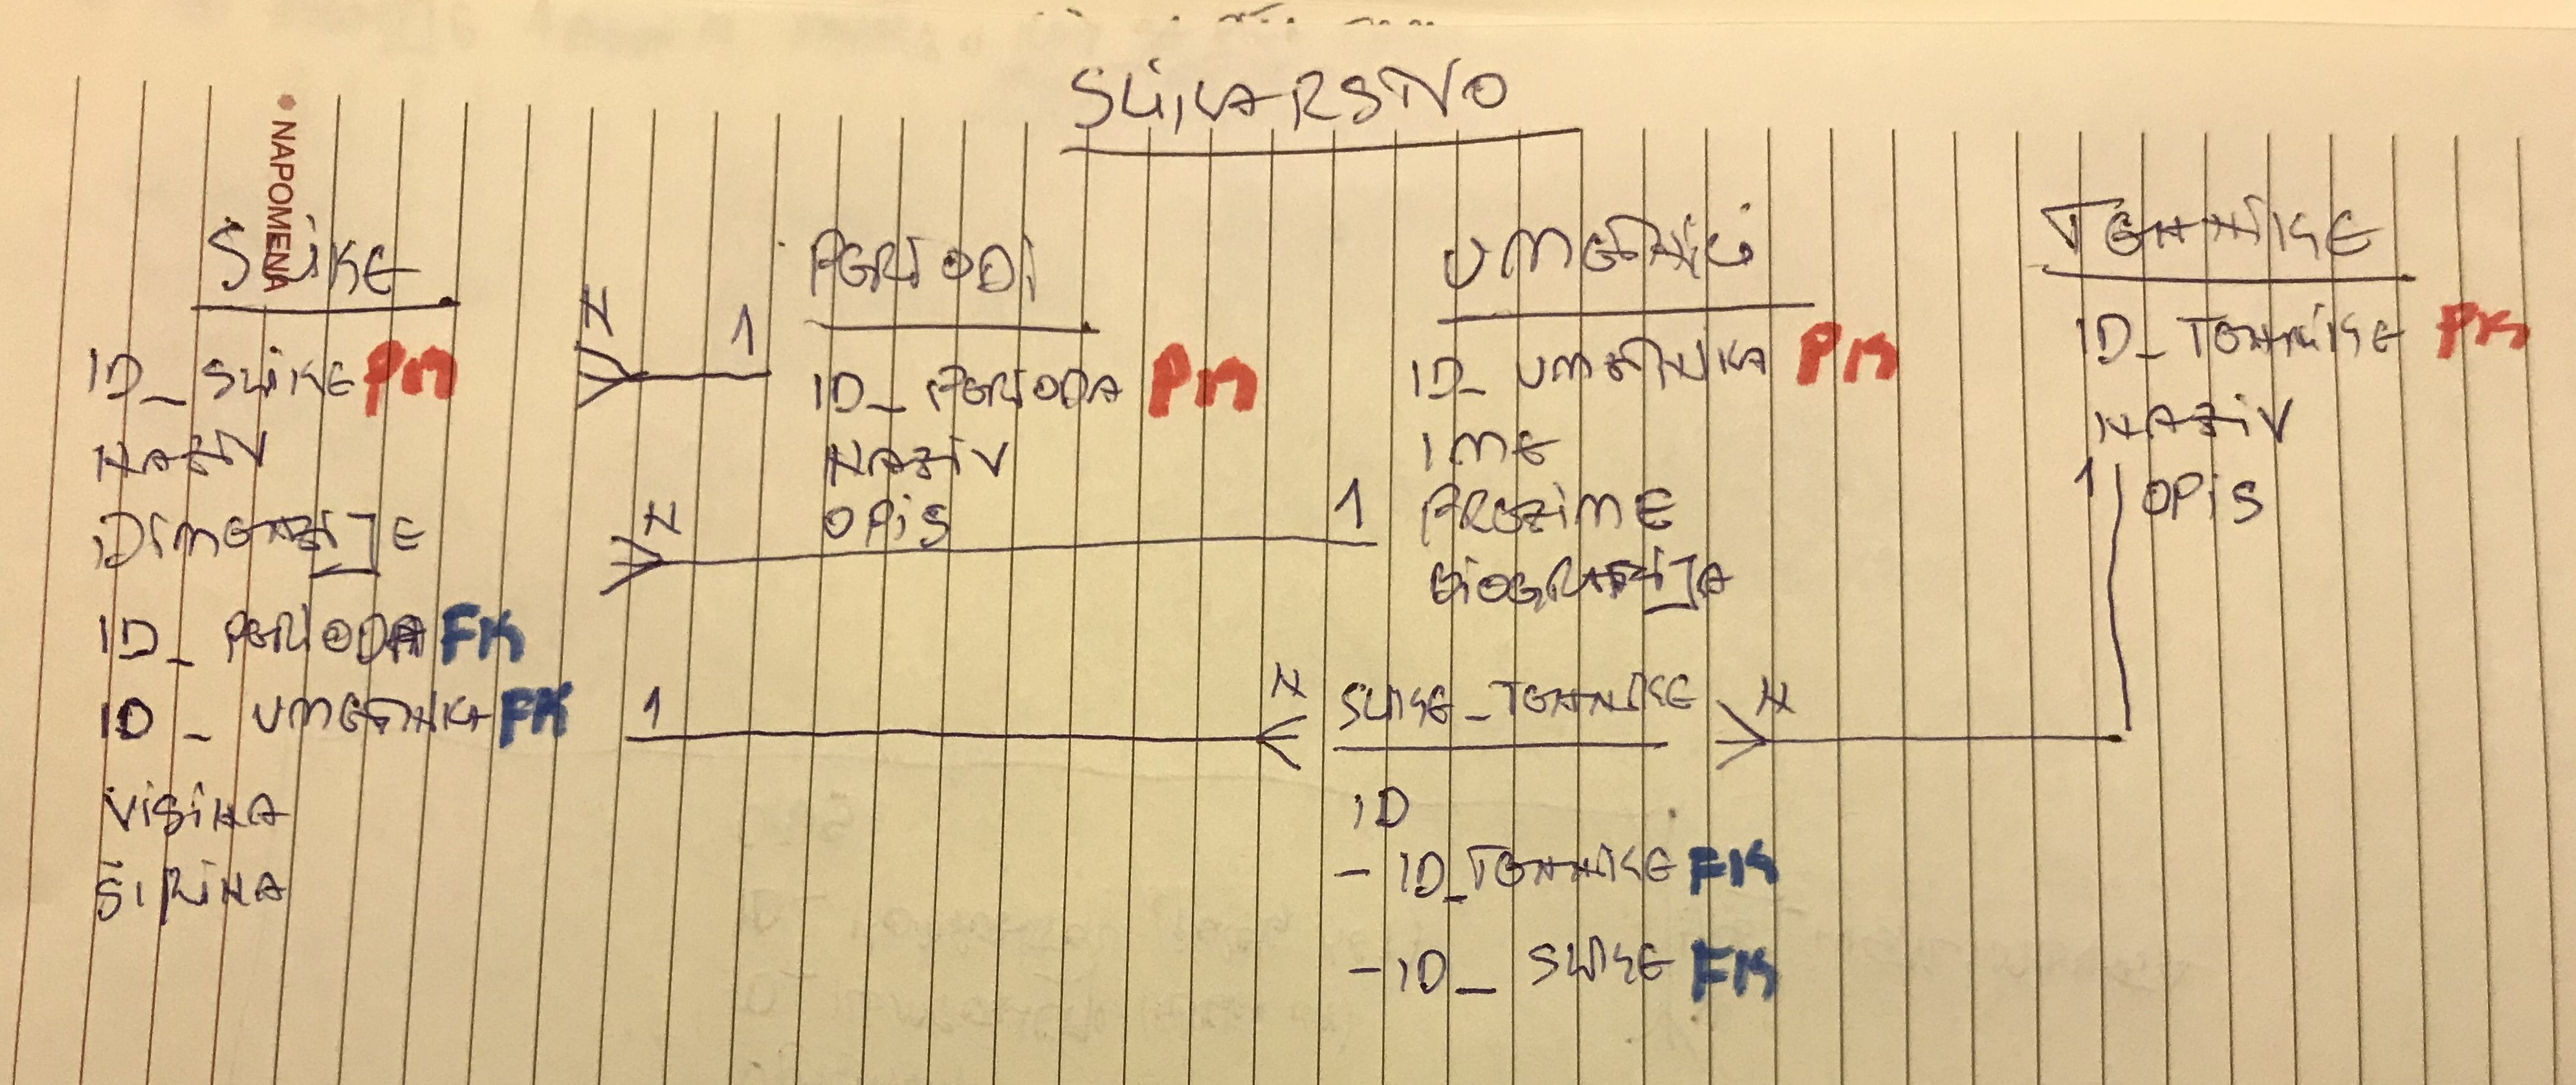 SLIKARSTVO
• NAPOMENA
SLIKE
ID_SLIKE PK
NAZIV
DIMENZIJE
ID_PERIODA FK
ID_UMETNIKA FK
VISINA
ŠIRINA
N 1
N 1
1 N
PERIODI
ID_PERIODA PK
NAZIV
OPIS
UMETNICI
ID_UMETNIKA PK
IME
PREZIME
BIOGRAFIJA
SLIKE_TEHNIKE
ID
- ID_TEHNIKE FK
- ID_SLIKE FK
N 1
TEHNIKE
ID_TEHNIKE PK
NAZIV
OPIS